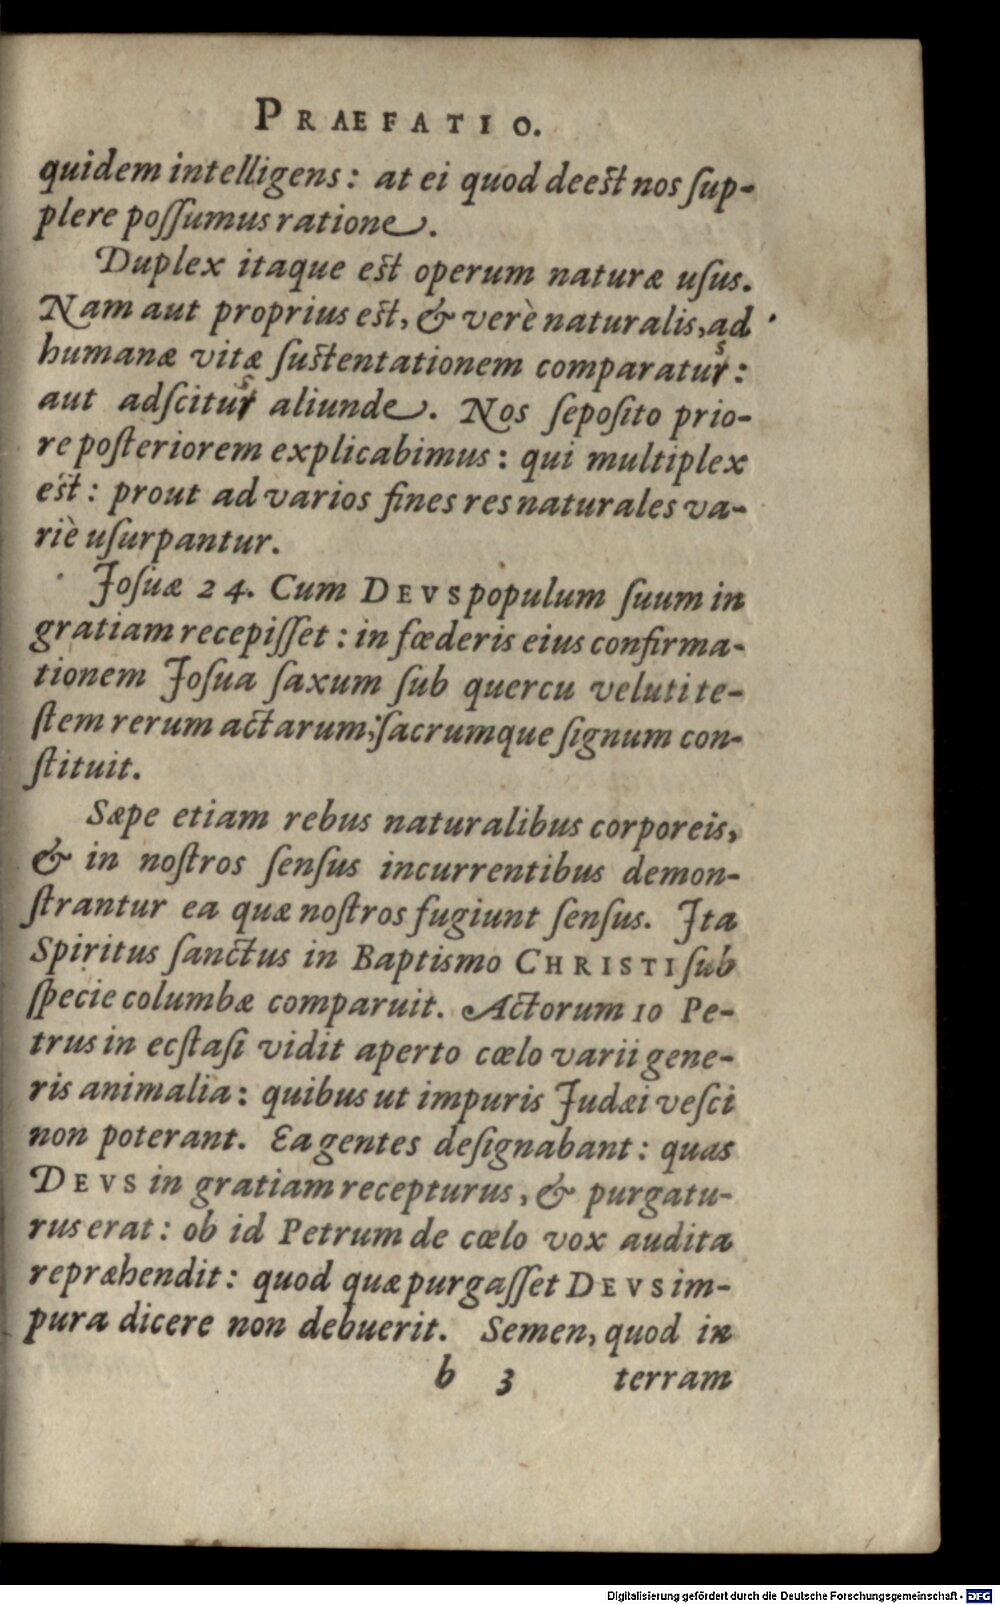 PRAEFATIO.
quidem intelligens: at ei quod deeſt nos ſup-
plere poſſumus ratione.
Duplex itaque eſt operum naturæ uſus.
Nam aut proprius eſt, & verè naturalis, ad
humanæ vitæ ſuſtentationem comparatur:
aut adſcitur aliunde. Nos ſepoſito prio-
re poſteriorem explicabimus: qui multiplex
eſt: prout ad varios fines res naturales va-
riè uſurpantur.
Joſuæ 24. Cum DEVS populum ſuum in
gratiam recepiſſet: in fœderis eius confirma-
tionem Joſua ſaxum ſub quercu veluti te-
ſtem rerum actarum; ſacrumque ſignum con-
ſtituit.
Sæpe etiam rebus naturalibus corporeis,
& in noſtros ſenſus incurrentibus demon-
ſtrantur ea quæ noſtros fugiunt ſenſus. Ita
Spiritus ſanctus in Baptismo CHRISTI ſub
ſpecie columbæ comparuit. Actorum 10 Pe-
trus in ecſtaſi vidit aperto cœlo varii gene-
ris animalia: quibus ut impuris Judæi veſci
non poterant. Ea gentes deſignabant: quas
DEVS in gratiam recepturus, & purgatu-
rus erat: ob id Petrum de cœlo vox audita
repræhendit: quod quæ purgaſſet DEVS im-
pura dicere non debuerit. Semen, quod in
b 3 terram
Digitalisierung gefördert durch die Deutsche Forschungsgemeinschaft - DFG